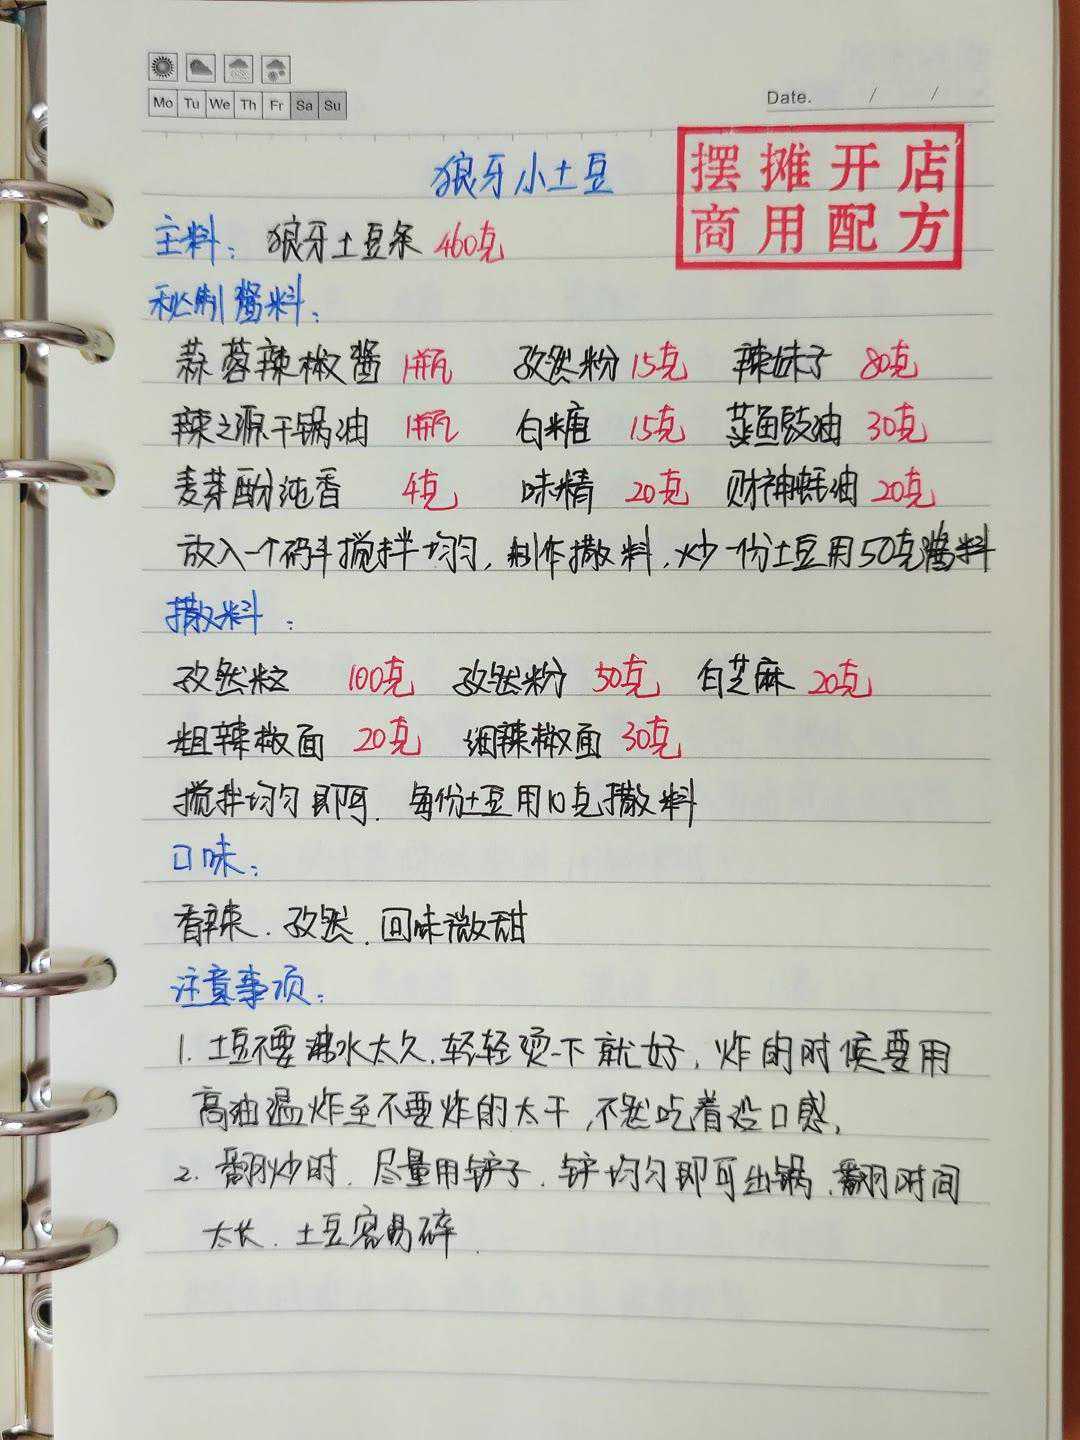 Mo Tu We Th Fr Sa Su
Date. / /
摆摊开店
商用配方
狼牙小土豆
主料：狼牙土豆条 460克
秘制酱料：
蒜蓉辣椒酱 1瓶 孜然粉 15克 辣妹子 80克
辣之源干锅油 1瓶 白糖 15克 蒸鱼豉油 30克
麦芽酚纯香 4克 味精 20克 财神蚝油 20克
放入一个码斗搅拌均匀，制作撒料，炒一份土豆用50克酱料
撒料：
孜然粒 100克 孜然粉 50克 白芝麻 20克
粗辣椒面 20克 细辣椒面 30克
搅拌均匀即可．每份土豆用10克撒料
口味：
香辣．孜然．回味微甜
注意事项：
1. 土豆不要沸水太久．轻轻烫一下就好，炸的时候要用
高油温炸至不要炸的太干，不然吃着没口感，
2. 翻炒时．尽量用铲子．铲均匀即可出锅．翻时间
太长．土豆容易碎．